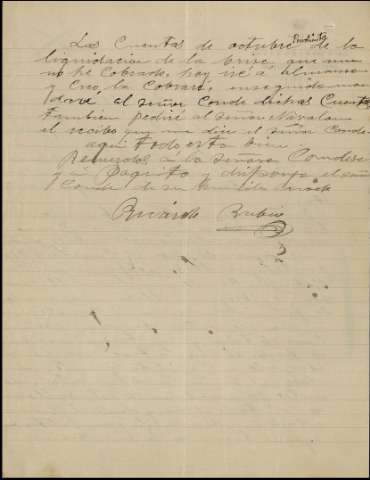 Pendiente
Las Cuentas de octubre de la
liquidacion de la brisa que aun
no he Cobrado, hoy iré á
y Creo la Cobraré, enseguida man
daré al señor Conde dichas Cuentas
tambien pediré al señor
el recibo que me dice el señor Conde
aqui todo esta bien
Recuerdos á la Señora Condesa
y á Paquito y disponga el señor
Conde de su humilde criado
Ricardo Rubio